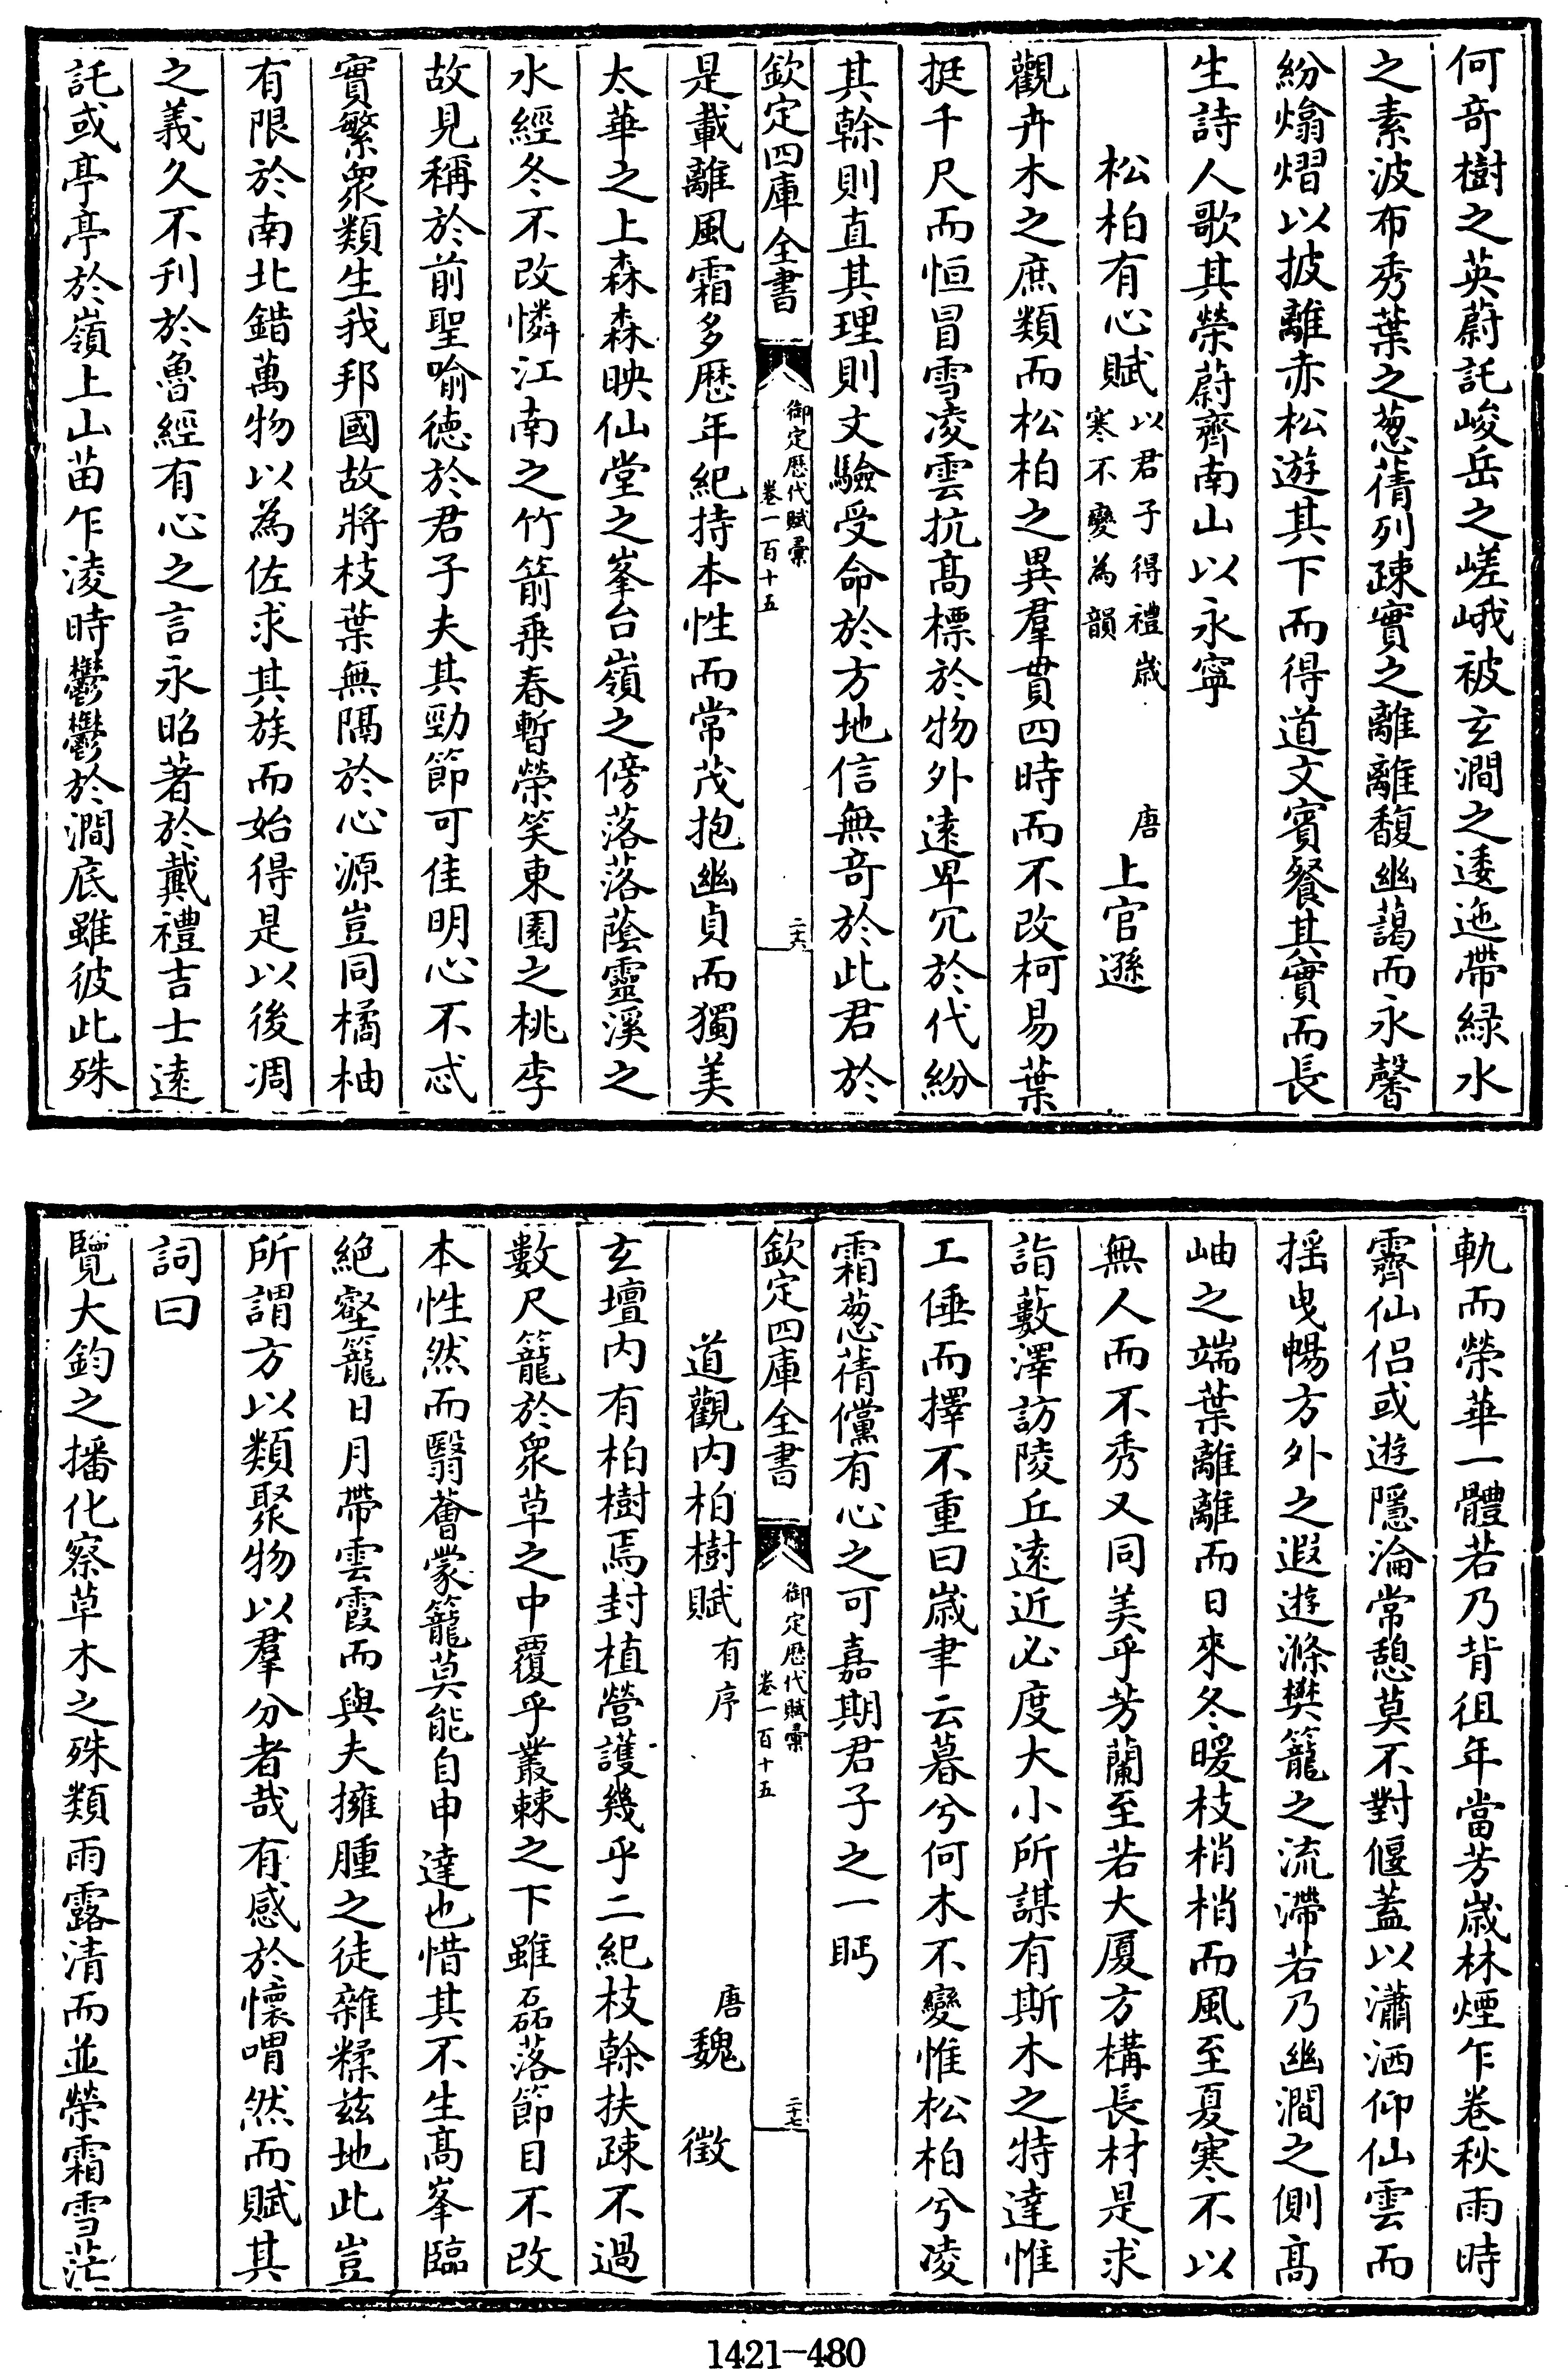 何奇樹之英蔚託峻岳之嵯峨被玄澗之逶迤帶緑水
之素波布秀葉之葱蒨列疎實之離離馥幽藹而永馨
紛熻熠以披離赤松遊其下而得道文賓餐其實而長
生詩人歌其榮蔚齊南山以永寧
松柏有心賦以君子得禮歲寒不變為韻 唐上官遜
觀卉木之庶類而松柏之異羣貫四時而不改柯易葉
挺千尺而恒冒雪凌雲抗髙標於物外遠卑冗於代紛
其榦則直其理則文驗受命於方地信無奇於此君於
欽定四庫全書 御定歷代賦彙卷一百十五 二十六
是載離風霜多歴年紀持本性而常茂抱幽貞而獨美
太華之上森森映仙堂之峯台嶺之傍落落蔭靈溪之
水經冬不改憐江南之竹箭乗春暫榮笑東園之桃李
故見稱於前聖喻德於君子夫其勁節可佳明心不忒
實繁衆類生我邦國故將枝葉無隔於心源豈同橘柚
有限於南北錯萬物以為佐求其族而始得是以後凋
之義久不刋於魯經有心之言永昭著於戴禮吉士遠
託或亭亭於嶺上山苗乍淩時鬱鬱於澗底雖彼此殊
軌而榮華一體若乃背徂年當芳歲林煙乍卷秋雨時
霽仙侣或遊隱淪常憩莫不對偃蓋以瀟洒仰仙雲而
揺曳暢方外之遐遊滌樊籠之流滯若乃幽澗之側髙
岫之端葉離離而日來冬暖枝梢梢而風至夏寒不以
無人而不秀又同美乎芳蘭至若大厦方構長材是求
詣藪澤訪陵丘遠近必度大小所謀有斯木之特達惟
工倕而擇不重曰歲聿云暮兮何木不變惟松柏兮凌
霜葱蒨儻有心之可嘉期君子之一眄
欽定四庫全書 御定歷代賦彙卷一百十五 二十七
道觀内柏樹賦有序 唐魏徵
玄壇内有柏樹焉封植營護幾乎二紀枝榦扶疎不過
數尺籠於衆草之中覆乎叢棘之下雖磊落節目不改
本性然而翳薈蒙籠莫能自申達也惜其不生髙峯臨
絶壑籠日月帶雲霞而與夫擁腫之徒雜糅兹地此豈
所謂方以類聚物以羣分者哉有感於懷喟然而賦其
詞曰
覽大鈞之播化察草木之殊類雨露清而並榮霜雪茫
1421-480